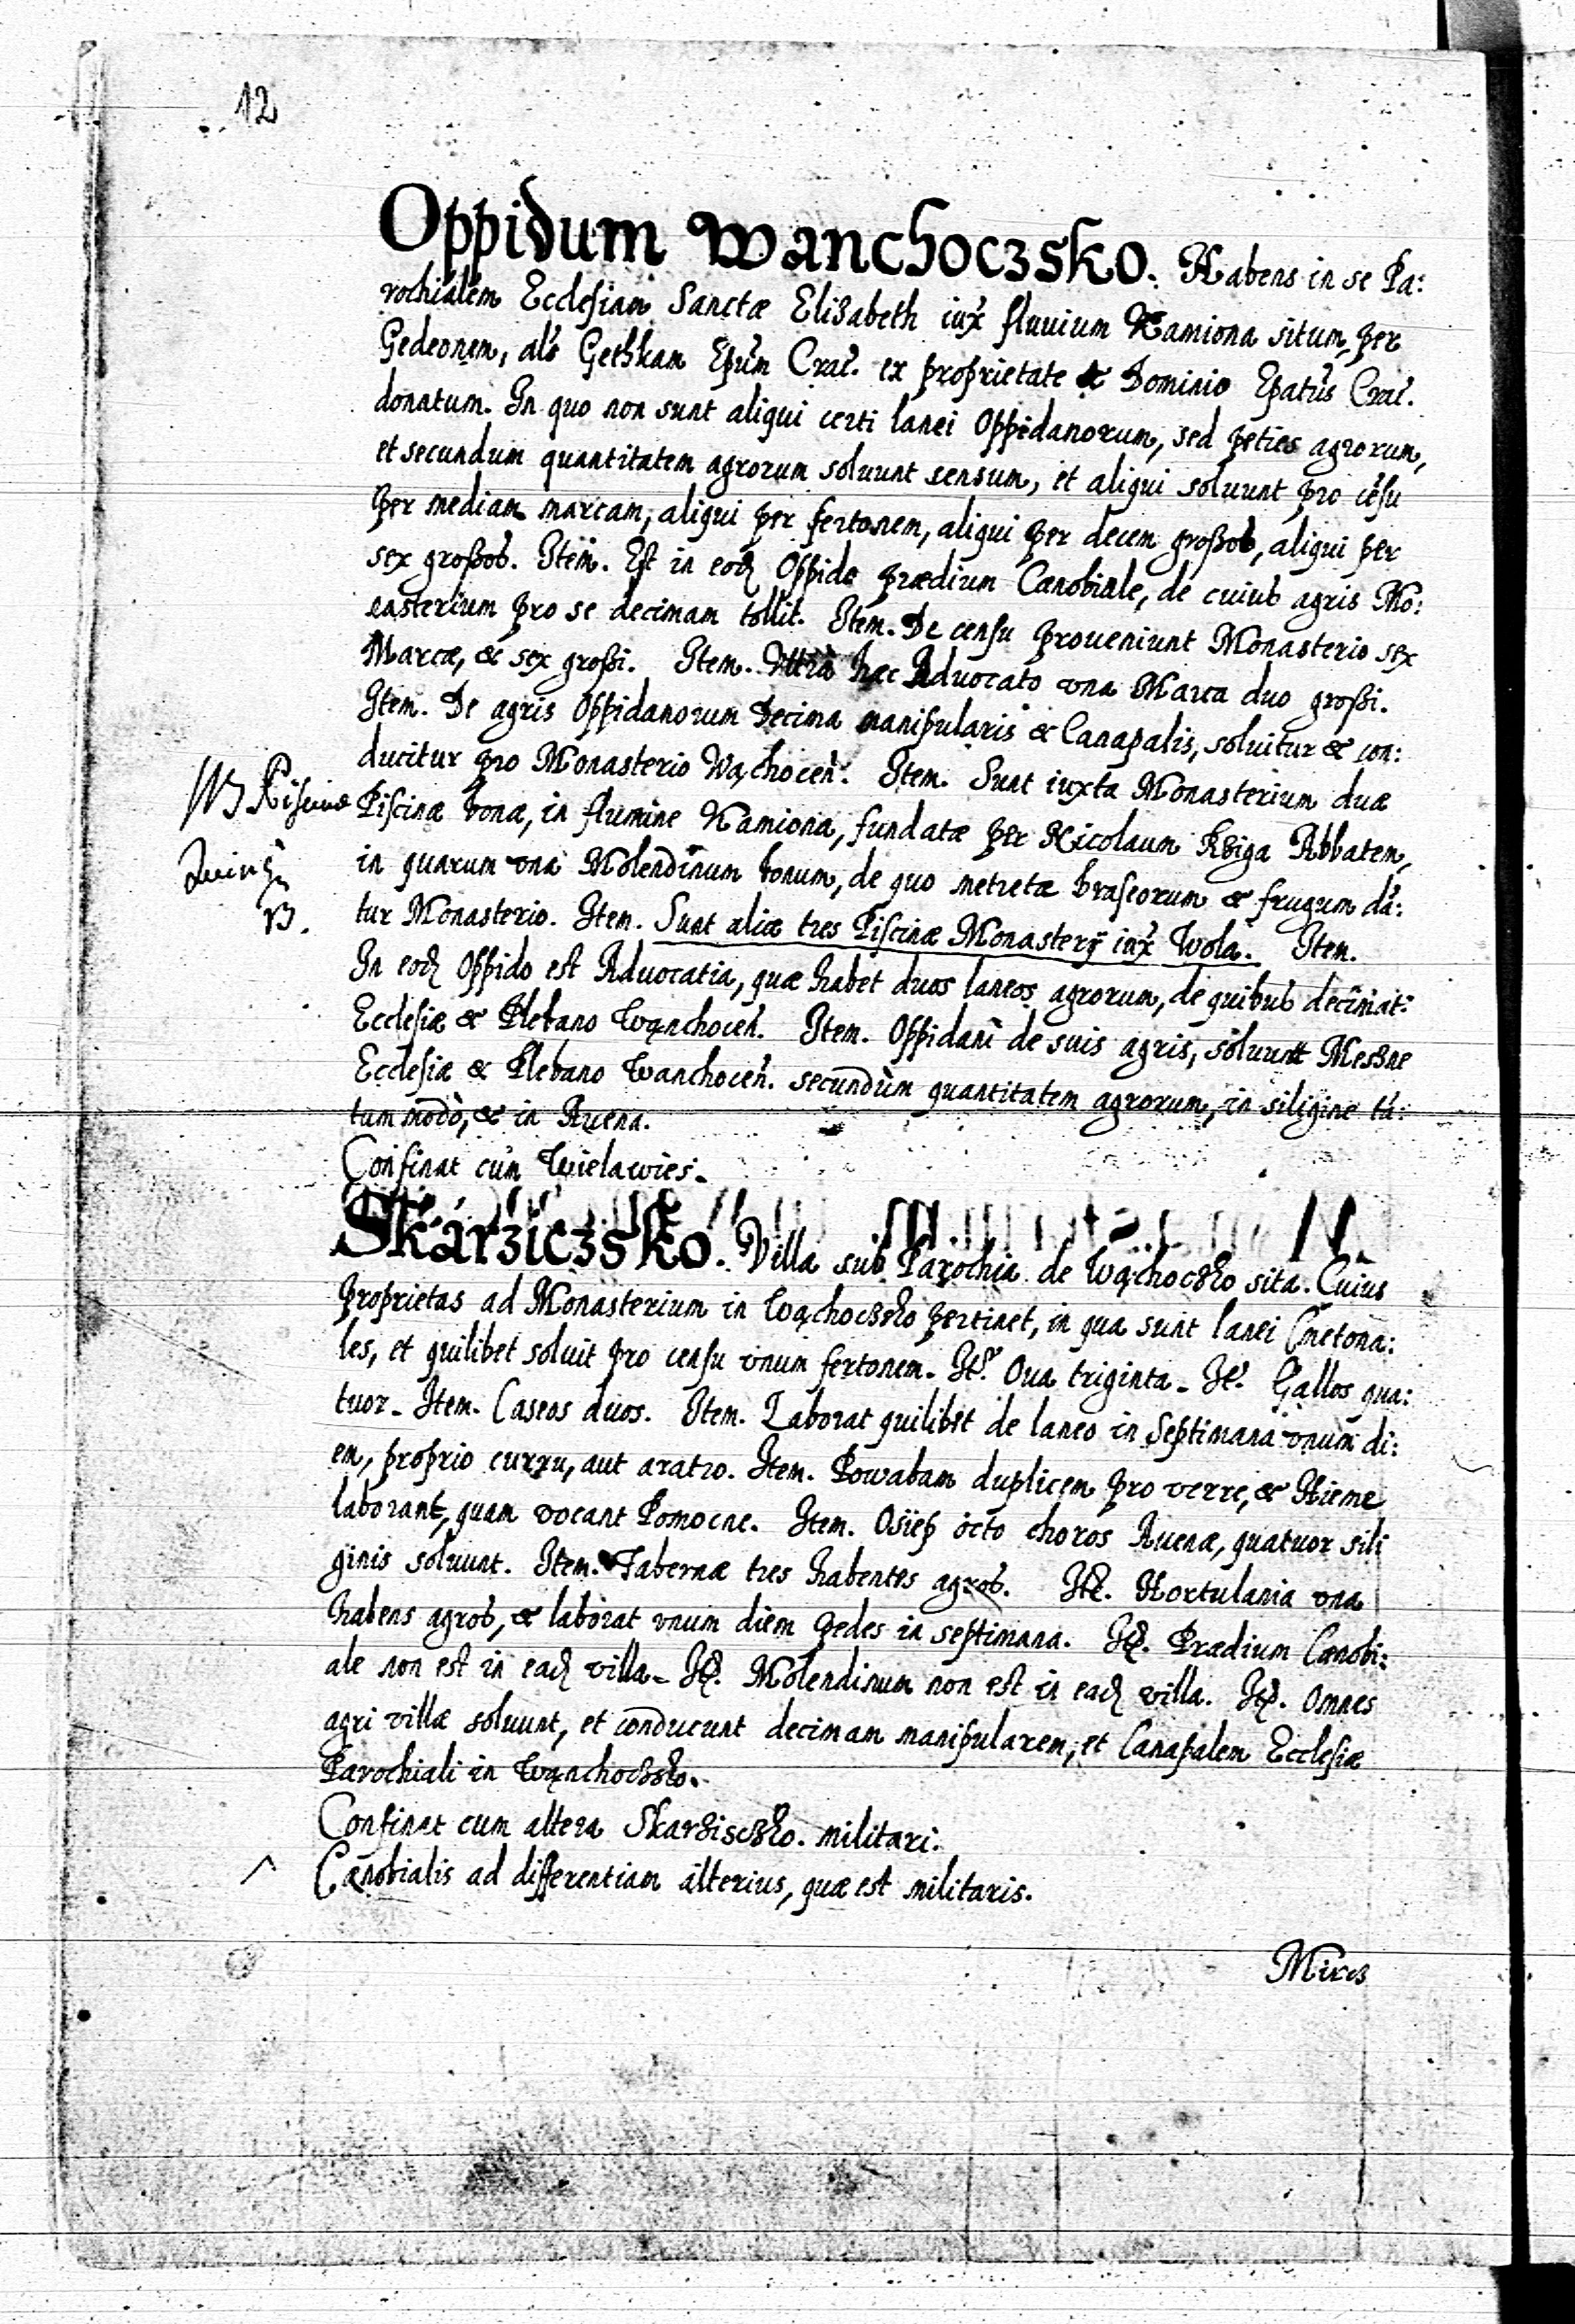 12
Oppidum Wanchoczsko. Habens in se Pa:
rochialem Ecclesiam Sanctæ Elisabeth iux̃ fluuium Kamiona situm, per
Gedeonem, al̃s Gethkam Ep̃um Crac̃. ex proprietate & Dominio Ep̃atus Crac̃.
donatum. In quo non sunt aliqui certi lanei Oppidanorum, sed peties agrorum,
et secundum quantitatem agrorum soluunt sensum, et aliqui soluunt pro cẽsu
per mediam marcam, aliqui per fertonem, aliqui per decem großos, aliqui per
sex großos. Item. Est in eod̃ Oppido prædium Cænobiale, de cuius agris Mo:
nasterium pro se decimam tollit. Item. De censu proueniunt Monasterio sex
Marcæ, & sex großi. Item. Vltra hæc Aduocato vna Marca duo großi.
Item. De agris Oppidanorum Decima manipularis & Canapalis, soluitur & con:
ducitur pro Monasterio Wąchocen̄. Item. Sunt iuxta Monasterium duæ
Piscinæ bonæ, in flumine Kamiona, fundatæ per Nicolaum Rziga Abbatem,
in quarum vna Molendinum bonum, de quo metretæ braseorum & frugum dã:
tur Monasterio. Item. Sunt aliæ tres Piscinæ Monasterÿ iux̃ Wola. Item.
NB Piscinæ
In eod̃ Oppido est Aduocatia, quæ habet duos laneos agrorum, de quibus decimat:
Ecclesiæ & Plebano Wąnchocen̄. Item. Oppidani de suis agris, soluunt Meszne
Ecclesiæ & Plebano Wanchocen̄. secundùm quantitatem agrorum, in siligine tã:
tummodò, & in Auena.
Confinat cum Wielawies.
Skarziczsko. Villa sub Parochia de Wąchoczko sita. Cuius
Proprietas ad Monasterium in Wąchoczsko pertinet, in qua sunt lanei Cmetona:
les, et quilibet soluit pro censu vnum fertonem. It̃. Oua triginta. It̃. Gallos qua:
tuor. Item. Caseos duos. Item. Laborat quilibet de laneo in Septimana vnum di:
em, proprio curru, aut aratro. Item. Powabam duplicem pro verre, & Hieme
laborant, quam vocant Pomocne. Item. Osiep octo choros Auenæ, quatuor sili
ginis soluunt. Item. Tabernæ tres habentes agros. It̃. Hortulania vna
habens agros, & laborat vnum diem pedes in septimana. It̃. Prædium Cænobi:
ale non est in ead̃ villa. It̃. Molendinum non est in ead̃ villa. It̃. Omnes
agri villæ soluunt, et conducunt decimam manipularem, et Canapalem Ecclesiæ
Parochiali in Wąnchoczsko.
Confinat cum altera Skarzisczko. militari.
Cænobialis ad differentiam alterius, quæ est militaris.
Mircz